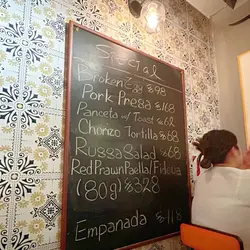 Special
Broken Egg $98
Pork Presa $168
Panceta w/ Toast $68
Chorizo Tortilla $68
Russa Salad $68
Red Prawn Paella/Fideua
(80g) $328
Empanada